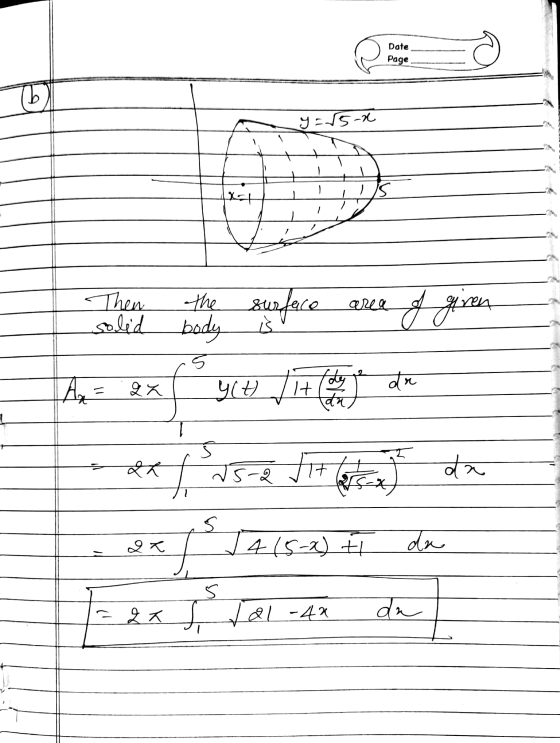 Date
Page
(b)
y = √5-x
x=1
5
Then the surface area of given
solid body is
Aₓ = 2π ∫₁⁵ y(t) √(1+(dy/dx)²) dx
= 2π ∫₁⁵ √5-2 √(1+(1/(2√5-x))²) dx
= 2π ∫₁⁵ √(4(5-x)+1) dx
= 2π ∫₁⁵ √(21-4x) dx